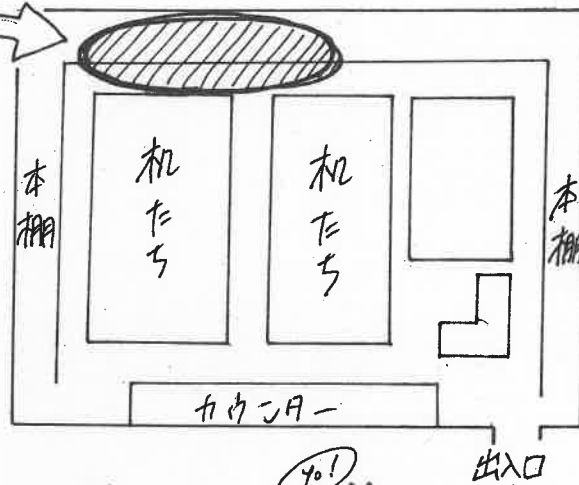 本棚
机たち
机たち
本棚
カウンター
yo!
出入口